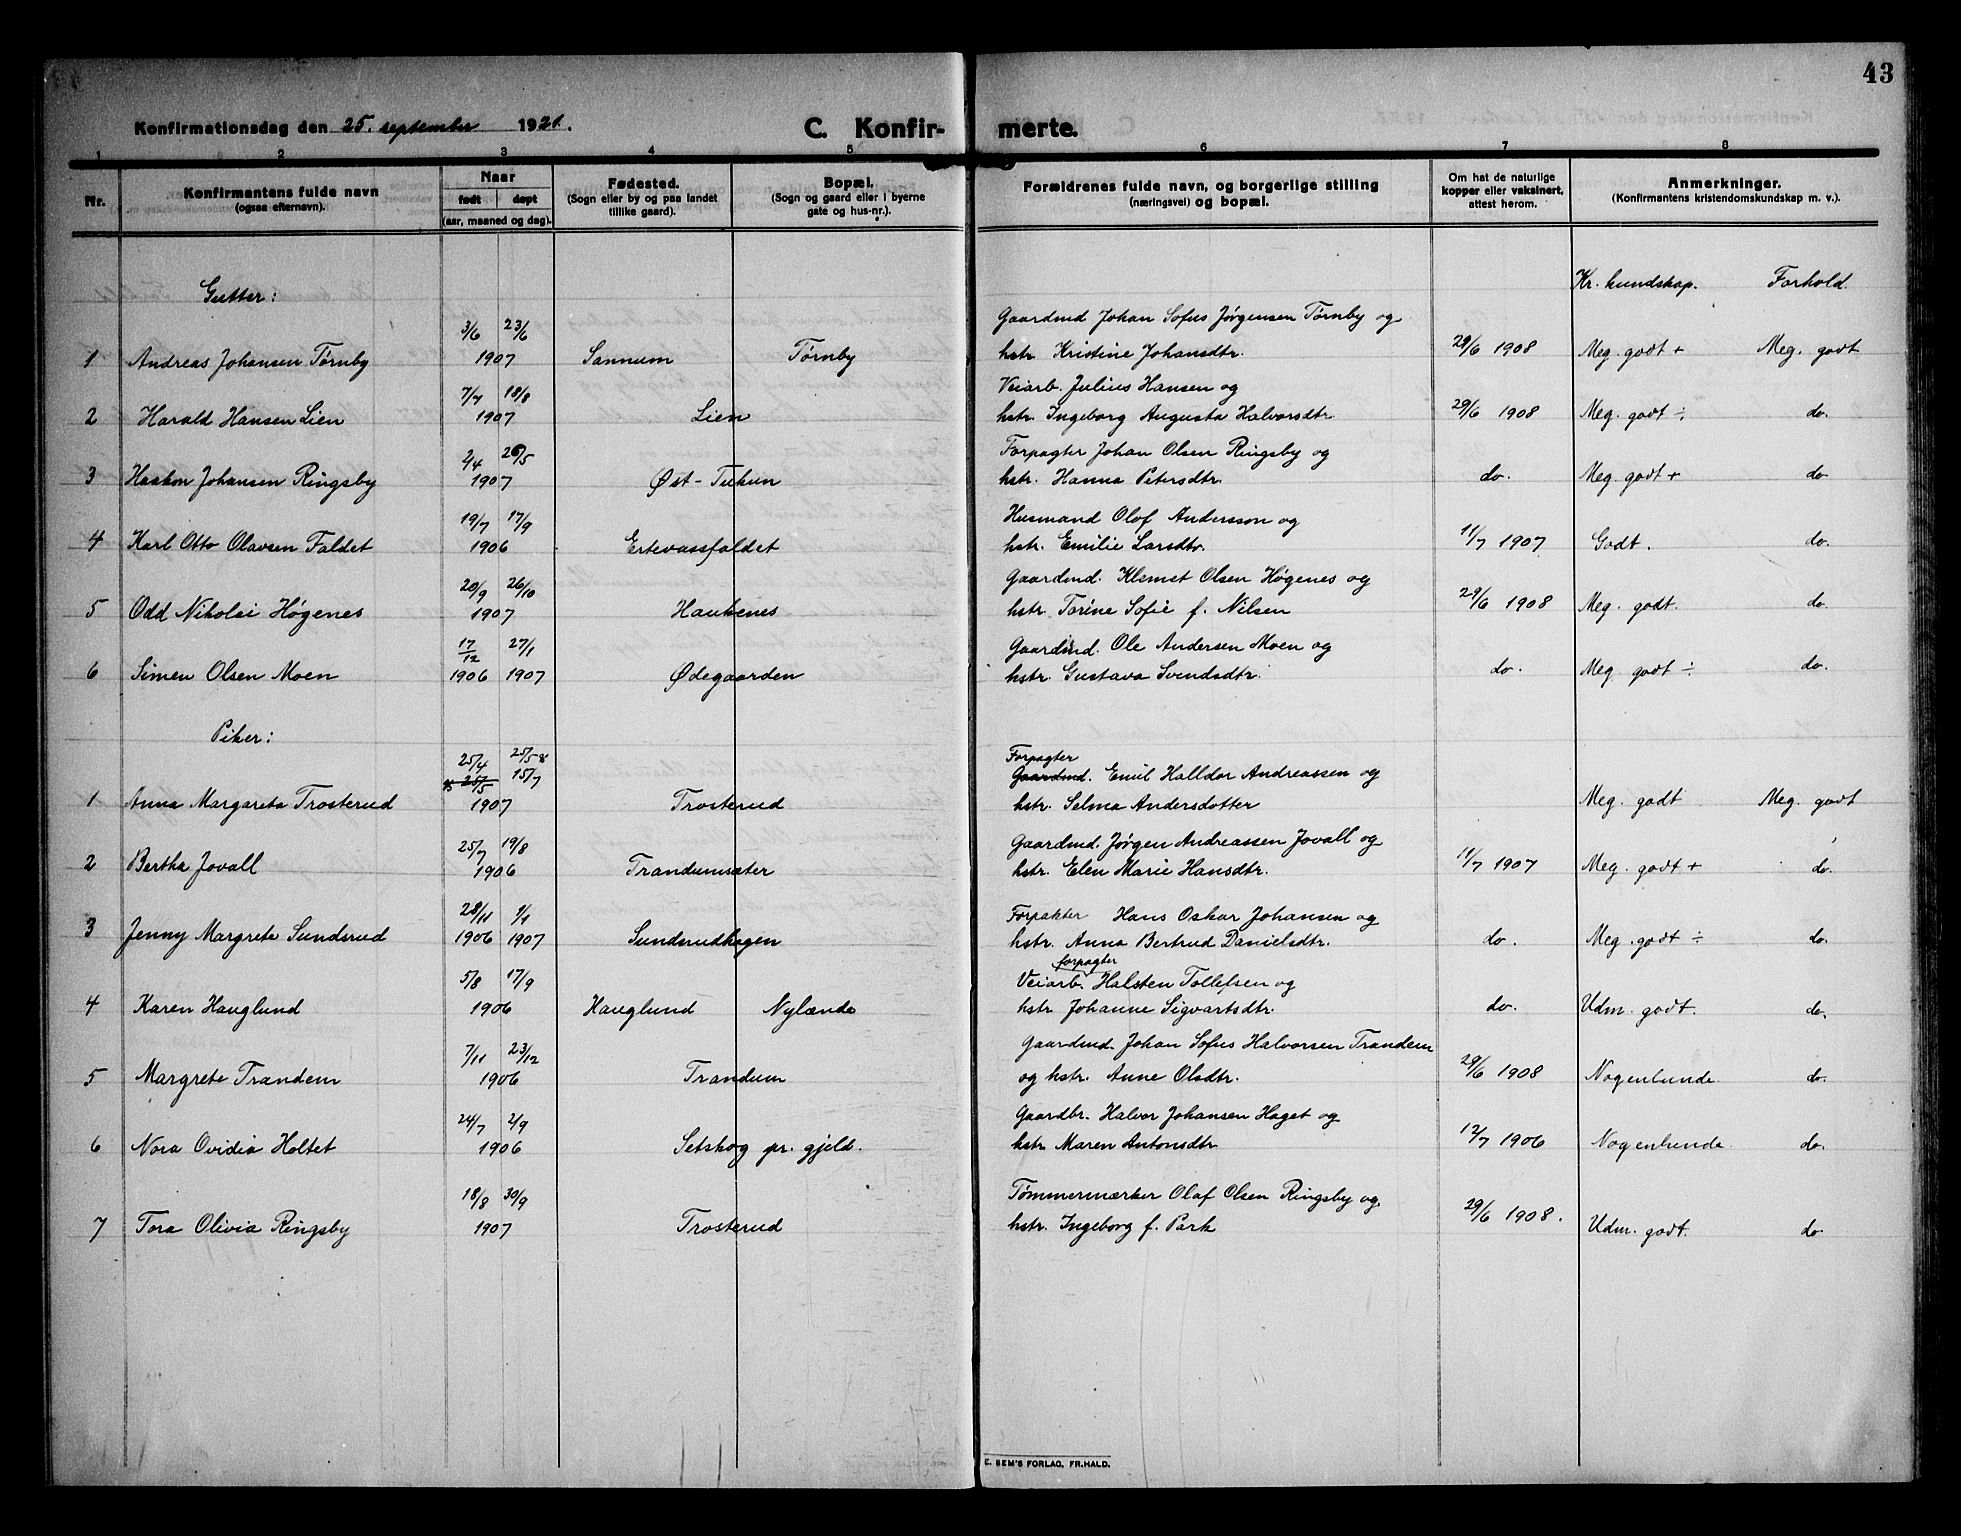 43
Konfirmationsdag den 25. september 1921.
C. Konfir- merte.
1 2 3 4 5 6 7 8
Nr.
Konfirmantens fulde navn
(ogsaa efternavn).
Naar
født døpt
(aar, maaned og dag).
Fødested.
(Sogn eller by og paa landet
tillike gaard).
Bopæl.
(Sogn og gaard eller i byerne
gate og hus-nr.).
Forældrenes fulde navn, og borgerlige stilling
(næringsvei) og bopæl.
Om hat de naturlige
kopper eller vaksinert,
attest herom.
Anmerkninger.
(Konfirmantens kristendomskundskap m. v.).
Gutter:
Kr. kundskap. Forhold.
3/6 23/6 Gaardmd Johan Sofus Jørgensen Tørnby og
1 Andreas Johansen Tørnby 1907 Sannum Tørnby hstr. Kristine Johansdtr. 29/6 1908 Meg. godt + Meg. godt
7/7 18/8 Veiarb. Julius Hansen og
2 Harald Hansen Lien 1907 Lien hstr. Ingeborg Augusta Halvorsdtr. 29/6 1908 Meg. godt ÷ do.
2/4 26/5 Forpagter Johan Olsen Ringsby og
3 Haakon Johansen Ringsby 1907 Øst-Tukun hstr. Hanna Petersdtr. do. Meg. godt + do
19/7 17/9 Husmand Olof Andersson og
4 Karl Otto Olavsen Faldet 1906 Ertevassfaldet hstr. Emilie Larsdtr. 11/7 1907 Godt. do.
20/9 26/10 Gaardmd. Klemet Olsen Høgenes og
5 Odd Nikolai Høgenes 1907 Haukenes hstr. Torine Sofie f. Nilsen 29/6 1908 Meg. godt. do.
17/12 27/1 Gaardmd. Ole Andersen Moen og
6 Simen Olsen Moen 1906 1907 Ødegaarden hstr. Gustava Svendsdtr. do. Meg. godt ÷ do.
Piker:
25/4 25/5 Forpagter
25/5 15/7 Gaardmd. Emil Halldor Andreassen og
1 Anna Margareta Trosterud 1907 Trosterud hstr. Selma Andersdotter Meg. godt Meg. godt
25/7 19/8 Gaardmd. Jørgen Andreassen Jovall og
2 Bertha Jovall 1906 Trandumsæter hstr. Elen Marie Hansdtr. 11/7 1907 Meg. godt + do.
28/11 1/1 Forpakter Hans Oskar Johansen og
3 Jenny Margrete Sundsrud 1906 1907 Sundsrudhagen hstr. Anna Bertrud Danielsdtr. do. Meg. godt ÷ do.
forpagter
5/8 17/9 Veiarb. Halsten Tollefsen og
4 Karen Hauglund 1906 Hauglund Nylænde hstr. Johanne Sigvartsdtr. do. Udm. godt. do.
7/11 23/12 Gaardmd. Johan Sofus Halvorsen Trandem
5 Margrete Trandem 1906 Trandum og hstr. Anne Olsdtr. 29/6 1908 Nogenlunde. do.
24/7 2/9 Gaardbr. Halvor Johansen Haget og
6 Nora Ovidia Holtet 1906 Setskog pr. gjeld. hstr. Maren Antonsdtr 12/7 1906 Nogenlunde do.
18/8 30/9 Tømmermærker Olaf Olsen Ringsby og
7 Tora Olivia Ringsby 1907 Trosterud hstr. Ingeborg f. Park 29/6 1908. Udm. godt. do
E. SEM'S FORLAG, FR.HALD.